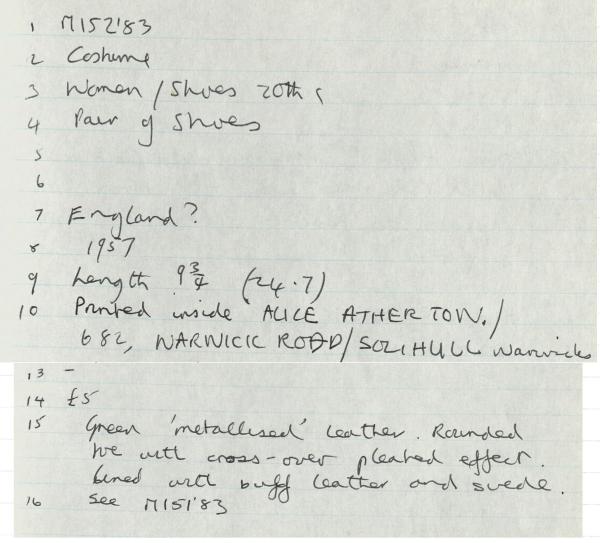 1 M152'83
2 Costume
3 Women / Shoes 20th c
4 Pair of Shoes
5
6
7 England?
8 1957
9 Length 9 3/4 (24.7)
10 Printed inside ALICE ATHERTON. /
682, WARWICK ROAD / SOLIHULL Warwicks
13 -
14 £5
15 Green 'metallised' leather. Rounded
toe with cross-over pleated effect.
Lined with buff leather and suede.
16 See M151'83